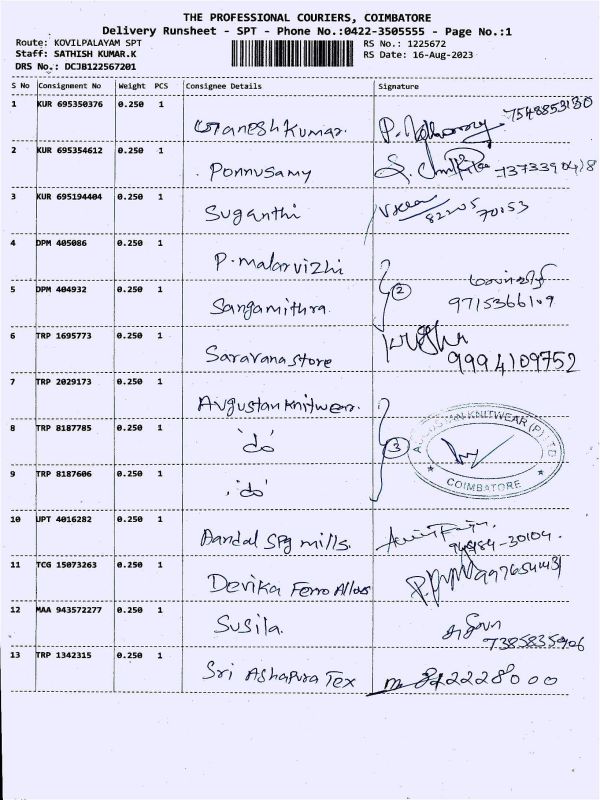 THE PROFESSIONAL COURIERS, COIMBATORE
Delivery Runsheet - SPT - Phone No.:0422-3505555 - Page No.:1
Route: KOVILPALAYAM SPT RS No.: 1225672
Staff: SATHISH KUMAR.K RS Date: 16-Aug-2023
DRS No.: DCJB122567201
S No Consignment No Weight PCS Consignee Details Signature
1 KUR 695350376 0.250 1 Ganesh Kumar. 7548853180
2 KUR 695354612 0.250 1 Ponnusamy 7373390418
3 KUR 695194404 0.250 1 Suganthi 82205 70153
4 DPM 405086 0.250 1 P. malarvizhi
5 DPM 404932 0.250 1 Sangamithra. 2 9715366109
6 TRP 1695773 0.250 1 Saravana store 9994109752
7 TRP 2029173 0.250 1 Avgustan Knitwear.
8 TRP 8187785 0.250 1 'do' 3 AUGUSTAN KNITWEAR (P) LTD
9 TRP 8187606 0.250 1 'do' COIMBATORE
10 UPT 4016282 0.250 1 Aandal Spg mills. -30104.
11 TCG 15073263 0.250 1 Devika Ferro Alloys
12 MAA 943572277 0.250 1 Susila. 7385835906
13 TRP 1342315 0.250 1 Sri Ashapura Tex